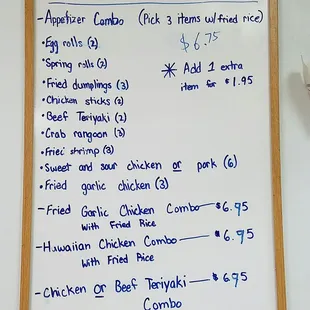 -Appetizer Combo (Pick 3 items w/fried rice)
•Egg rolls (2) $6.75
•Spring rolls (2)
* Add 1 extra
item for $1.95
•Fried dumplings (3)
•Chicken sticks (2)
•Beef Teriyaki (2)
•Crab rangoon (3)
•Fried shrimp (3)
•Sweet and sour chicken or pork (6)
•Fried garlic chicken (3)
-Fried Garlic Chicken Combo—$6.95
With Fried Rice
-Hawaiian Chicken Combo—$6.95
With Fried Rice
-Chicken or Beef Teriyaki—$6.95
Combo